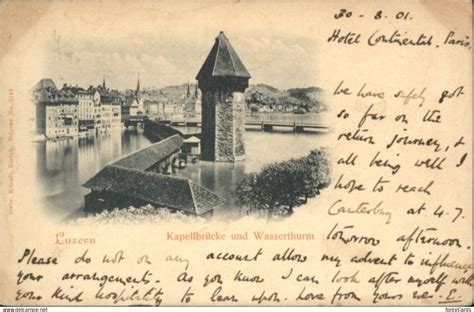 30-8.01.
Hotel Continental, Paris
We have safely got
so far on the
return journey, &
all being well I
hope to reach
Canterbury at 4.7
tomorrow afternoon
Luzern
Kapellbrücke und Wasserturm
Please do not on any account allow my advent to influence
your arrangements. As you know I can look after myself with
your kind hospitality to lean upon. Love from yours
Gebr. Künzli, Zürich.
fonteCards